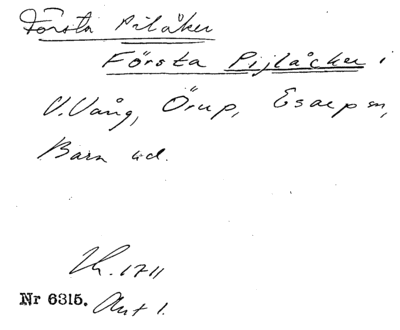 Första Pilåker
Första Pijlåcker i
V. Vång, Örup, Esarp sn,
Bara hd.
Lk. 1711
Nr 6315. Akt 1.